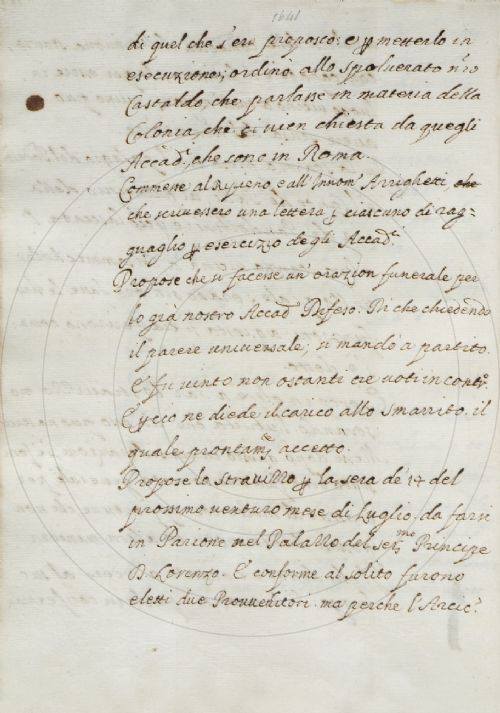 1641
di quel che s'era proposto: e p metterlo in
esecuzione, ordinò allo Spolverato nro
Castaldo, che parlasse in materia della
Colonia, che ci vien chiesta da quegli
Accad.i che sono in Roma.
Commesse al Ripieno, e all'Innom.o Arrighetti che
che scrivessero una lettera p ciascuno di rag=
guaglio p esercizio degli Accad.i
Propose che si facesse un'orazion funerale per
lo già nostro Accad.o Difeso. Di che chiedendo
il parere universale, si mandò a partito.
E fu vinto non ostanti tre voti in contr.o
E pciò ne diede il carico allo Smarrito. il
quale prontam.e accettò.
Propose lo stravizzo p la sera de' 14 del
prossimo venturo mese di Luglio, da farsi
in Parione nel Palazzo del Ser.mo Principe
D. Lorenzo. E conforme al solito furono
eletti due Provveditori. ma perche l'Arcic.o